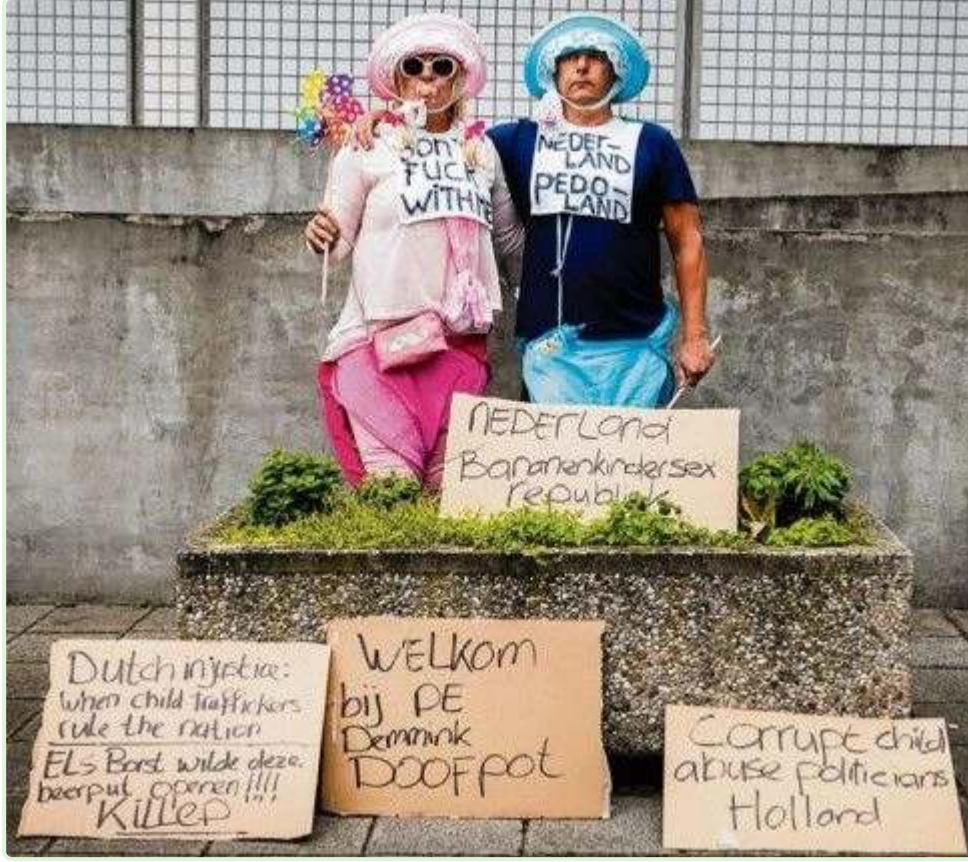 DON'T
FUCK
WITH ME
NEDER-
LAND
PEDO-
LAND
NEDERLAND
Bananenkindersex
republiek
Dutch injustice:
when child traffickers
rule the nation
ELs Borst wilde deze
beerput openen!!!
KiLLED
WELKOM
bij DE
Demmink
DOOFpot
Corrupt child
abuse politicians
Holland